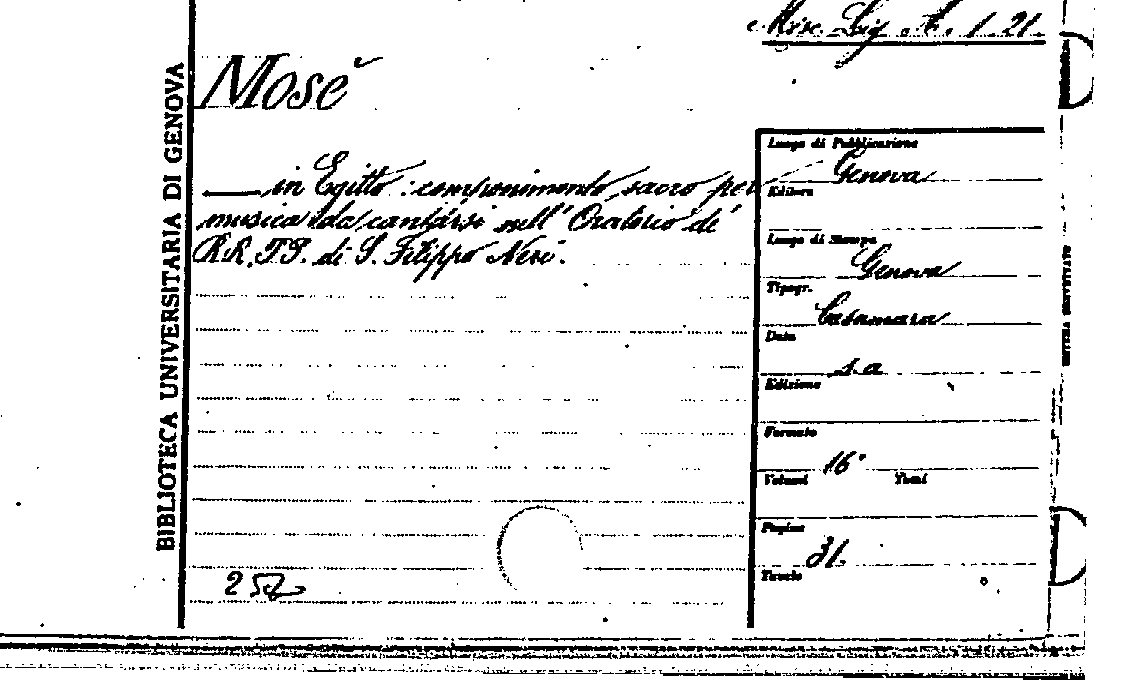 Misc. Lig. A. 1. 21.
Mosè
BIBLIOTECA UNIVERSITARIA DI GENOVA
— in Egitto : componimento sacro per
musica da cantarsi nell' Oratorio de'
RR. PP. di S. Filippo Neri.
Luogo di Pubblicazione
Genova
Editore
Luogo di Stampa
Genova
Tipogr.
Casamara
Data
s. a
Edizione
Formato
16°
Volumi Tomi
Pagine
31.
Tavole